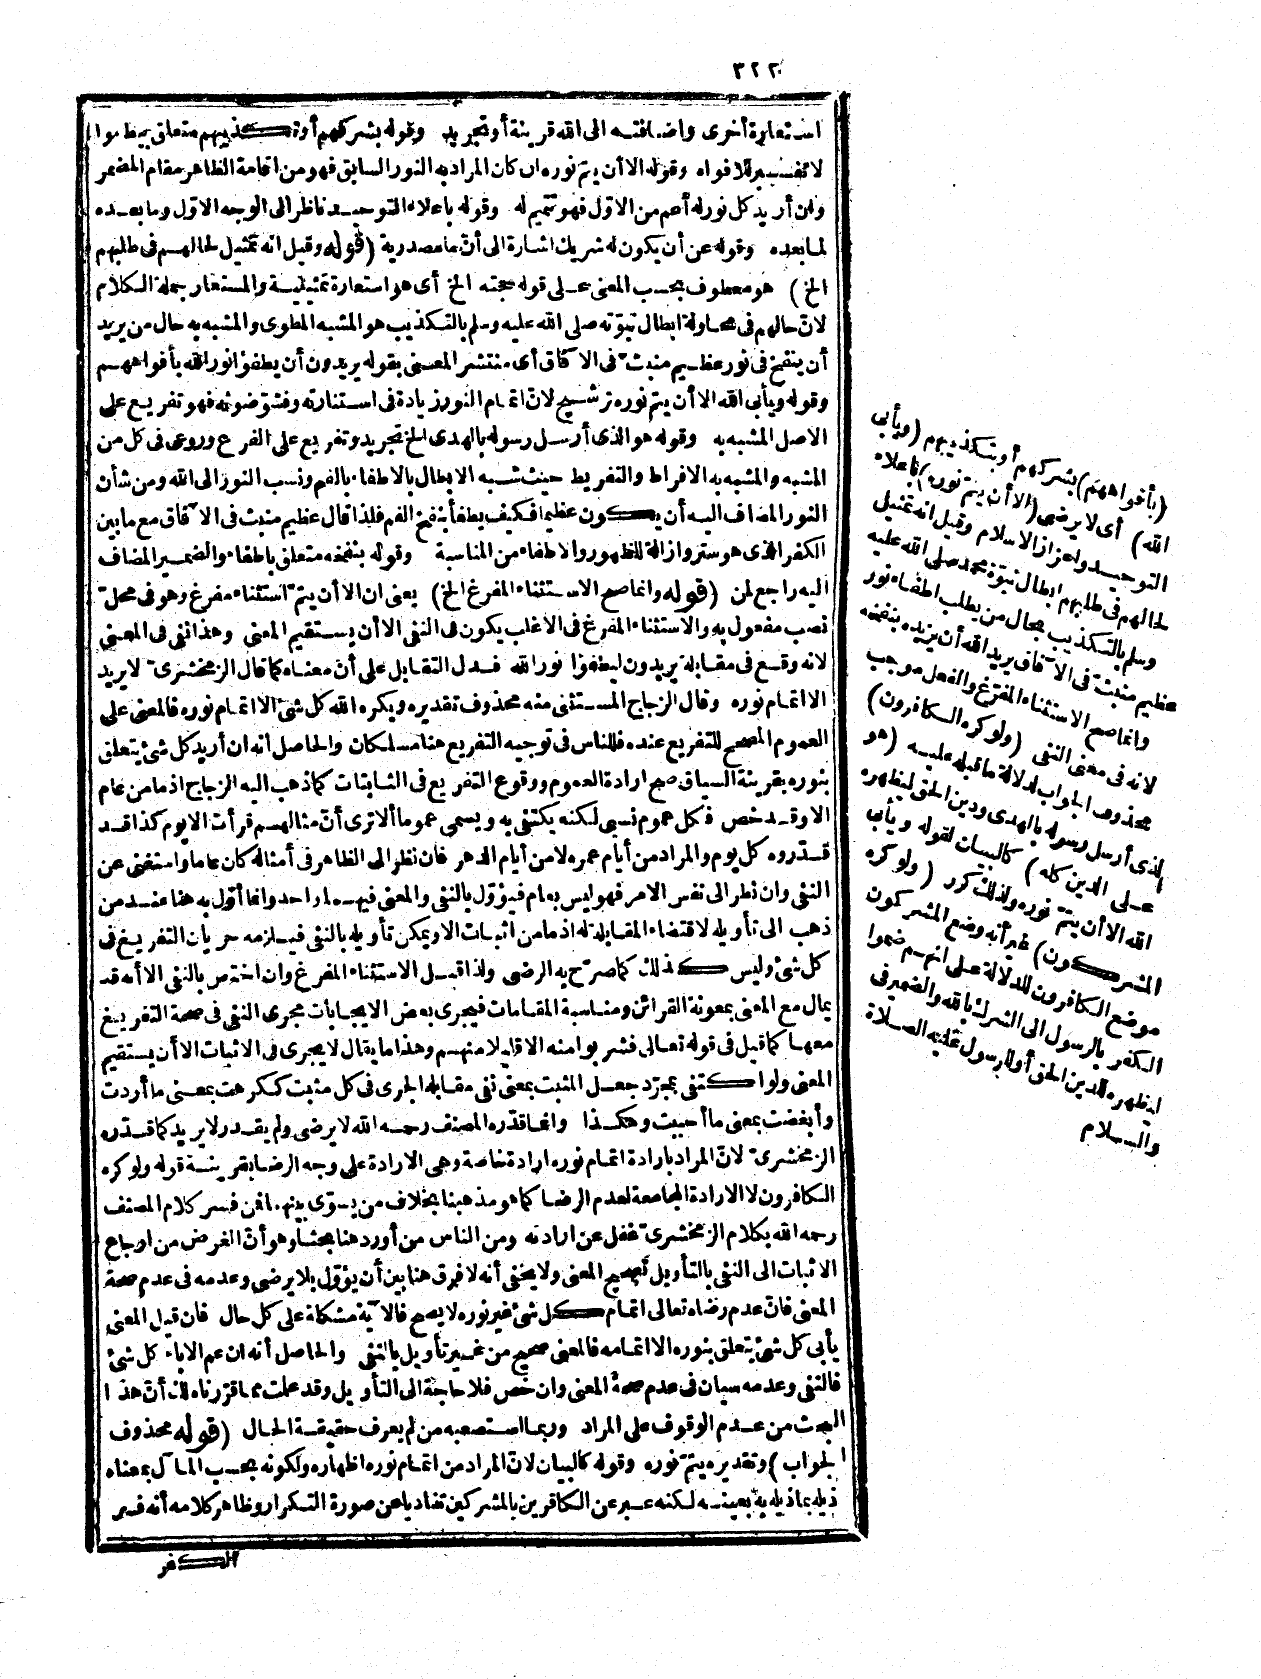 ٣٢٢
استعارة أخرى واضافته الى الله قرينة أو تجريد وقوله بشركهم أو تكذيبهم متعلق بيطفؤا
لا تفسير للافواه وقوله الا أن يتم نوره ان كان المراد به النور السابق فهو من اقامة الظاهر مقام المضمر
وان أريد كل نور له أعم من الاوّل فهو تتميم له وقوله باعلاء التوحيد ناظر الى الوجه الاوّل وما بعده
لما بعده وقوله عن أن يكون له شريك اشارة الى أنّ ما مصدرية (قوله وقيل انه تمثيل لحالهم فى طلبهم
الخ) هو معطوف بحسب المعنى على قوله حجته الخ أى هو استعارة تمثيلية والمستعار جملة الكلام
لانّ حالهم فى محاولة ابطال نبوّته صلى الله عليه وسلم بالتكذيب هو المشبه المطوى والمشبه به حال من يريد
أن ينفخ فى نور عظيم منبثّ فى الا ّفاق أى منتشر المعنى بقوله يريدون أن يطفؤا نور الله بأفواههم
وقوله ويأبى الله الا أن يتم نوره ترشيح لانّ اتمام النور زيادة فى استنارته وفشوّ ضوئه فهو تفريع على
الاصل المشبه به وقوله هو الذى أرسل رسوله بالهدى الخ تجريد وتفريع على الفرع وروعى فى كل من
المشبه والمشبه به الافراط والتفريط حيث شبه الابطال بالاطفاء بالفم ونسب النور الى الله ومن شأن
النور المضاف اليه أن يكون عظيما فكيف يطفأ بنفخ الفم فلذا قال عظيم منبث فى الا ّفاق مع ما بين
الكفر الذى هو ستر وازالة للظهور والاطفاء من المناسبة وقوله بنفخه متعلق باطفاء والضمير المضاف
اليه راجع لمن (قوله وانما صح الاستثناء المفرغ الخ) يعنى ان الا أن يتمّ استثناء مفرغ وهو فى محلّ
نصب مفعول به والاستثناء المفرغ فى الاغلب يكون فى النفى الا أن يستقيم المعنى وهذا نفى فى المعنى
لانه وقع فى مقابلة يريدون ليطفؤا نور الله فدل التقابل على أنّ معناه كما قال الزمخشرىّ لا يريد
الا اتمام نوره وقال الزجاج المستثنى منه محذوف تقديره ويكره الله كل شئ الا اتمام نوره فالمعنى على
العموم المصحح للتفريع عنده فللناس فى توجيه التفريع هنا مسلكان والحاصل أنه ان أريد كل شئ يتعلق
بنوره بقرينة السياق صح ارادة العموم ووقوع التفريع فى الثابتات كما ذهب اليه الزجاج اذ ما من عام
الا وقد خص فكل عموم نسبى لكنه يكتفى به ويسمى عموما ألا ترى أنّ مثالهم قرأت الا يوم كذا قد
قدّروه كل يوم والمراد من أيام عمره لا من أيام الدهر فان نظر الى الظاهر فى أمثاله كان عاما واستغنى عن
النفى وان نظر الى نفس الامر فهو ليس بعام فيؤوّل بالنفى والمعنى فيهما واحد وانما أوّل به هنا عند من
ذهب الى تأويله لاقتضاء المقابلة له اذ ما من اثبات الا ويمكن تأويله بالنفى فيلزمه جريان التفريغ فى
كل شئ وليس كذلك كما صرّح به الرضى ولذا قيل الاستثناء المفرغ وان اختص بالنفى الا أنه قد
يمال مع المعنى بمعونة القرائن ومناسبة المقامات فيجرى بعض الايجابات مجرى النفى فى صحة التفريغ
معها كما قيل فى قوله تعالى فشربوا منه الا قليلا منهم وهذا ما يقال لا يجرى فى الاثبات الا أن يستقيم
المعنى ولو اكتفى بمجرّد جعل المثبت بمعنى نفى مقابله لجرى فى كل مثبت ككرهت بمعنى ما أردت
وأبغضت بمعنى ما أحببت وهكذا وانما قدّره المصنف رحمه الله لا يرضى ولم يقدر لا يريد كما قدّره
الزمخشرىّ لانّ المراد بارادة اتمام نوره ارادة خاصة وهى الارادة على وجه الرضا بقرينة قوله ولو كره
الكافرون لا الارادة المجامعة لعدم الرضا كما هو مذهبنا بخلاف من يسوّى بينهما فمن فسر كلام المصنف
رحمه الله بكلام الزمخشرىّ غفل عن ارادته ومن الناس من أورد هنا بحثا وهو أنّ الغرض من ارجاع
الاثبات الى النفى بالتأويل تصحيح المعنى ولا يخفى أنه لا فرق هنا بين أن يؤوّل بلا يرضى وعدمه فى عدم صحة
المعنى فانّ عدم رضاه تعالى اتمام كل شئ غير نوره لا يصح فالا ّية مشكلة على كل حال فان قيل المعنى
يأبى كل شئ يتعلق بنوره الا اتمامه فالمعنى صحيح من غير تأويل بالنفى والحاصل أنه ان عم الاباء كل شئ
فالنفى وعدمه سيان فى عدم صحة المعنى وان خص فلا حاجة الى التأويل وقد علمت مما قرّرناه لك أنّ هذا
البحث من عدم الوقوف على المراد وربما استصعبه من لم يعرف حقيقة الحال (قوله محذوف
الجواب) وتقديره يتمّ نوره وقوله كالبيان لانّ المراد من اتمام نوره اظهاره ولكونه بحسب الماّل بمعناه
ذيله بما ذيله به بعينه لكنه عبر عن الكافرين بالمشركين تفاديا عن صورة التكرار وظاهر كلامه أنه فسر
الكفر
(بأفواههم) بشركهم أو بتكذيبهم (ويأبى
الله) أى لا يرضى (الا أن يتم نوره) باعلاء
التوحيد واعزاز الاسلام وقيل انه تمثيل
لحالهم فى طلبهم ابطال نبوّة محمد صلى الله عليه
وسلم بالتكذيب بحال من يطلب اطفاء نور
عظيم منبثّ فى الا ّفاق يريد الله أن يزيده بنفخه
وانما صح الاستثناء المفرّغ والفعل موجب
لانه فى معنى النفى (ولو كره الكافرون)
محذوف الجواب لدلالة ما قبله عليه (هو
الذى أرسل رسوله بالهدى ودين الحق ليظهره
على الدين كله) كالبيان لقوله ويأبى
الله الا أن يتمّ نوره ولذلك كرر (ولو كره
المشركون) غير أنه وضع المشركون
موضع الكافرون للدلالة على انهم ضموا
الكفر بالرسول الى الشرك بالله والضمير فى
ليظهره للدين الحق أو للرسول عليه الصلاة
والسلام